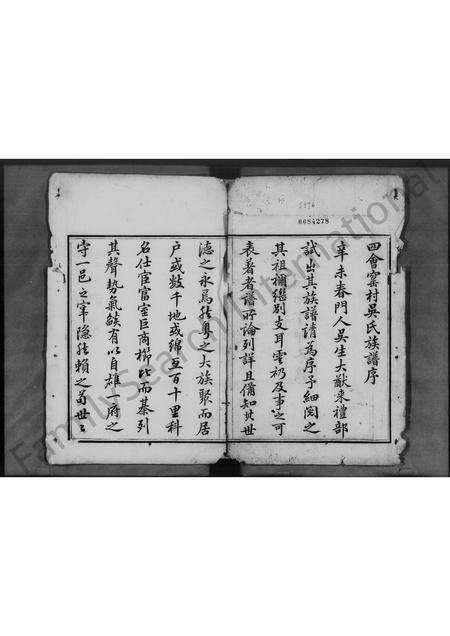 四會窰村吳氏族譜序
辛未春門人吳生大猷來禮部
試出其族譜請為序予細閱之
其祖禰繼別支耳雲礽及事之可
表著者譜所論列詳且備知其世
德之永焉然粵之大族聚而居
戶或數千地或綿亙百十里科
名仕宦富室巨商櫛比而棊列
其聲勢氣燄有以自雄一府之
守一邑之宰隱然賴之葢世
6684278
FamilySearch International